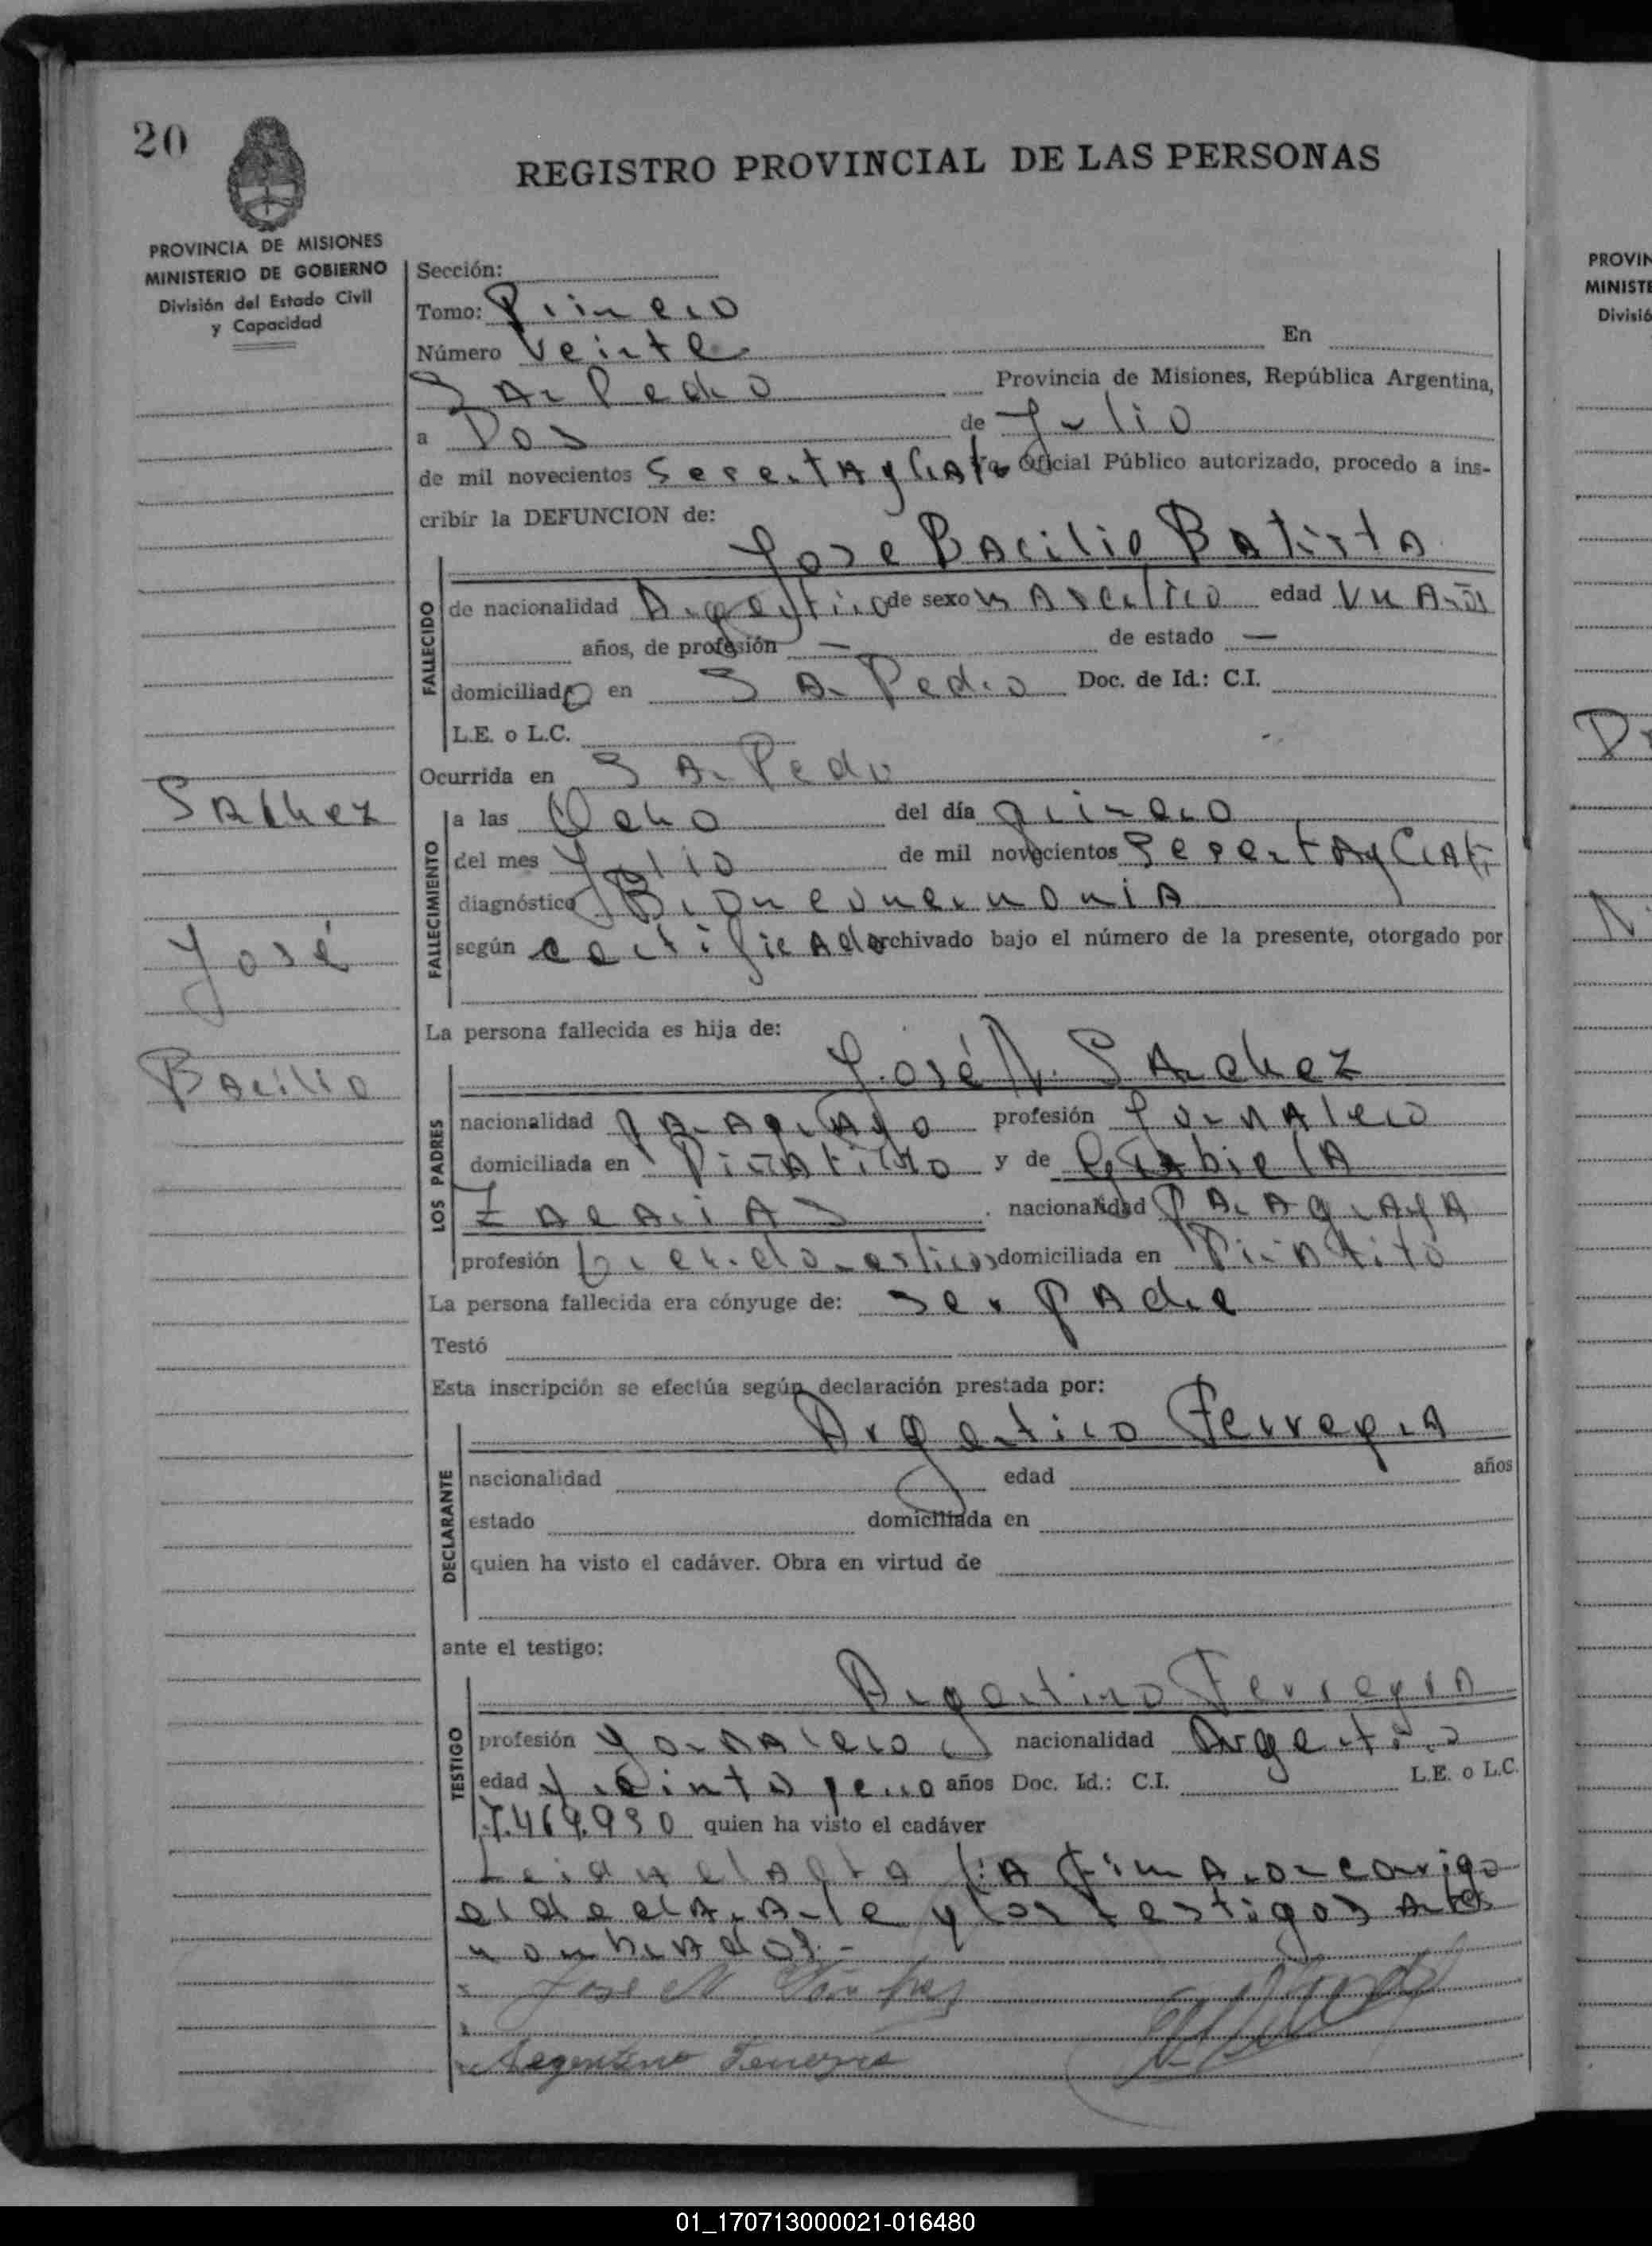 20
REGISTRO PROVINCIAL DE LAS PERSONAS
PROVINCIA DE MISIONES
MINISTERIO DE GOBIERNO
División del Estado Civil
y Capacidad
Sección:
Tomo: Primero
Número Veinte En
San Pedro Provincia de Misiones, República Argentina,
a Dos de Julio
de mil novecientos Oficial Público autorizado, procedo a ins-
cribir la DEFUNCION de:
Jose Bacilio Batista
FALLECIDO
de nacionalidad Argentino de sexo masculino edad un
años, de profesión — de estado —
domiciliado en San Pedro Doc. de Id.: C.I.
L.E. o L.C.
Ocurrida en San Pedro
FALLECIMIENTO
a las Ocho del día primero
del mes Julio de mil novecientos
diagnóstico
según certificado archivado bajo el número de la presente, otorgado por
La persona fallecida es hija de:
José N. Sanchez
LOS PADRES
nacionalidad paraguayo profesión Jornalero
domiciliada en y de Gabriela
nacionalidad paraguaya
profesión domiciliada en
La persona fallecida era cónyuge de: padre
Testó
Esta inscripción se efectúa según declaración prestada por:
Argentino Ferreyra
DECLARANTE
nacionalidad edad años
estado domiciliada en
quien ha visto el cadáver. Obra en virtud de
ante el testigo:
Argentino Ferreyra
TESTIGO
profesión Jornalero nacionalidad Argentino
edad años Doc. Id.: C.I. L.E. o L.C.
7.469.930 quien ha visto el cadáver
Leida el acta la firman conmigo
el declarante y los testigos antes
nombrados.-
Jose N Sanchez
Argentino Ferreyra
Sanchez
José
Bacilio
PROVIN
MINISTE
Divisió
01_170713000021-016480